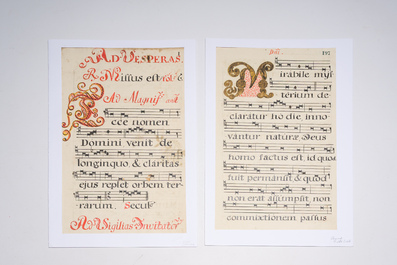 AD VESPERAS.
R. Missus est
Ad Magnif. ant.
Ecce nomen
Domini venit de
longinquo & claritas
ejus replet orbem ter-
rarum. Secus
Ad Vigilias Invitater
Mirabile mys
terium de
claratur hodie inno
vantur naturæ, Deus
homo factus est id quod
fuit permansit & quod
non erat assumpsit, non
commixtionem passus